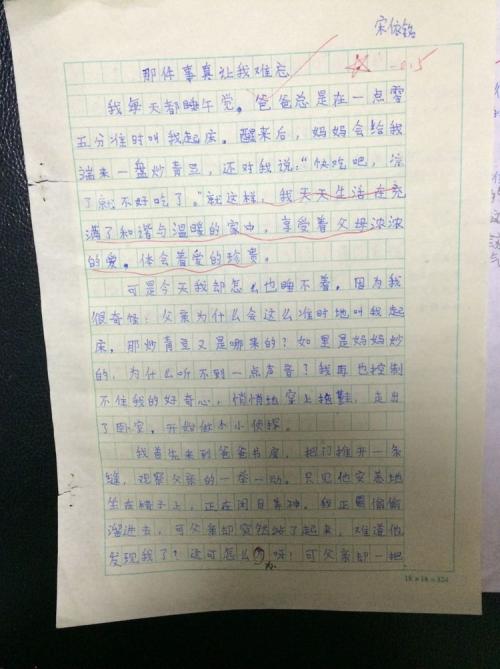 宋依铭
那件事真让我难忘
-0.5
我每天都睡午觉。爸爸总是在一点零
五分准时叫我起床。醒来后,妈妈会给我
端来一盘炒青豆,还对我说:“快吃吧,凉
了就不好吃了。”就这样,我天天生活在充
满了和谐与温暖的家中,享受着父母浓浓
的爱。体会着爱的珍贵。
可是今天我却怎么也睡不着。因为我
很奇怪:父亲为什么会这么准时地叫我起
床,那炒青豆又是哪来的?如果是妈妈炒
的,为什么听不到一点声音?我再也控制
不住我的好奇心,悄悄地穿上拖鞋,走出
了卧室,开始做个小侦探。
我首先来到爸爸书房,把门推开一条
缝,观察父亲的一举一动。只见他安慕地
坐在椅子上,正在闭目养神。我正偷偷
溜进去,可父亲却突然站了起来,难道他
发现我了?这可怎么办呀!可父亲却一把
18×18=324